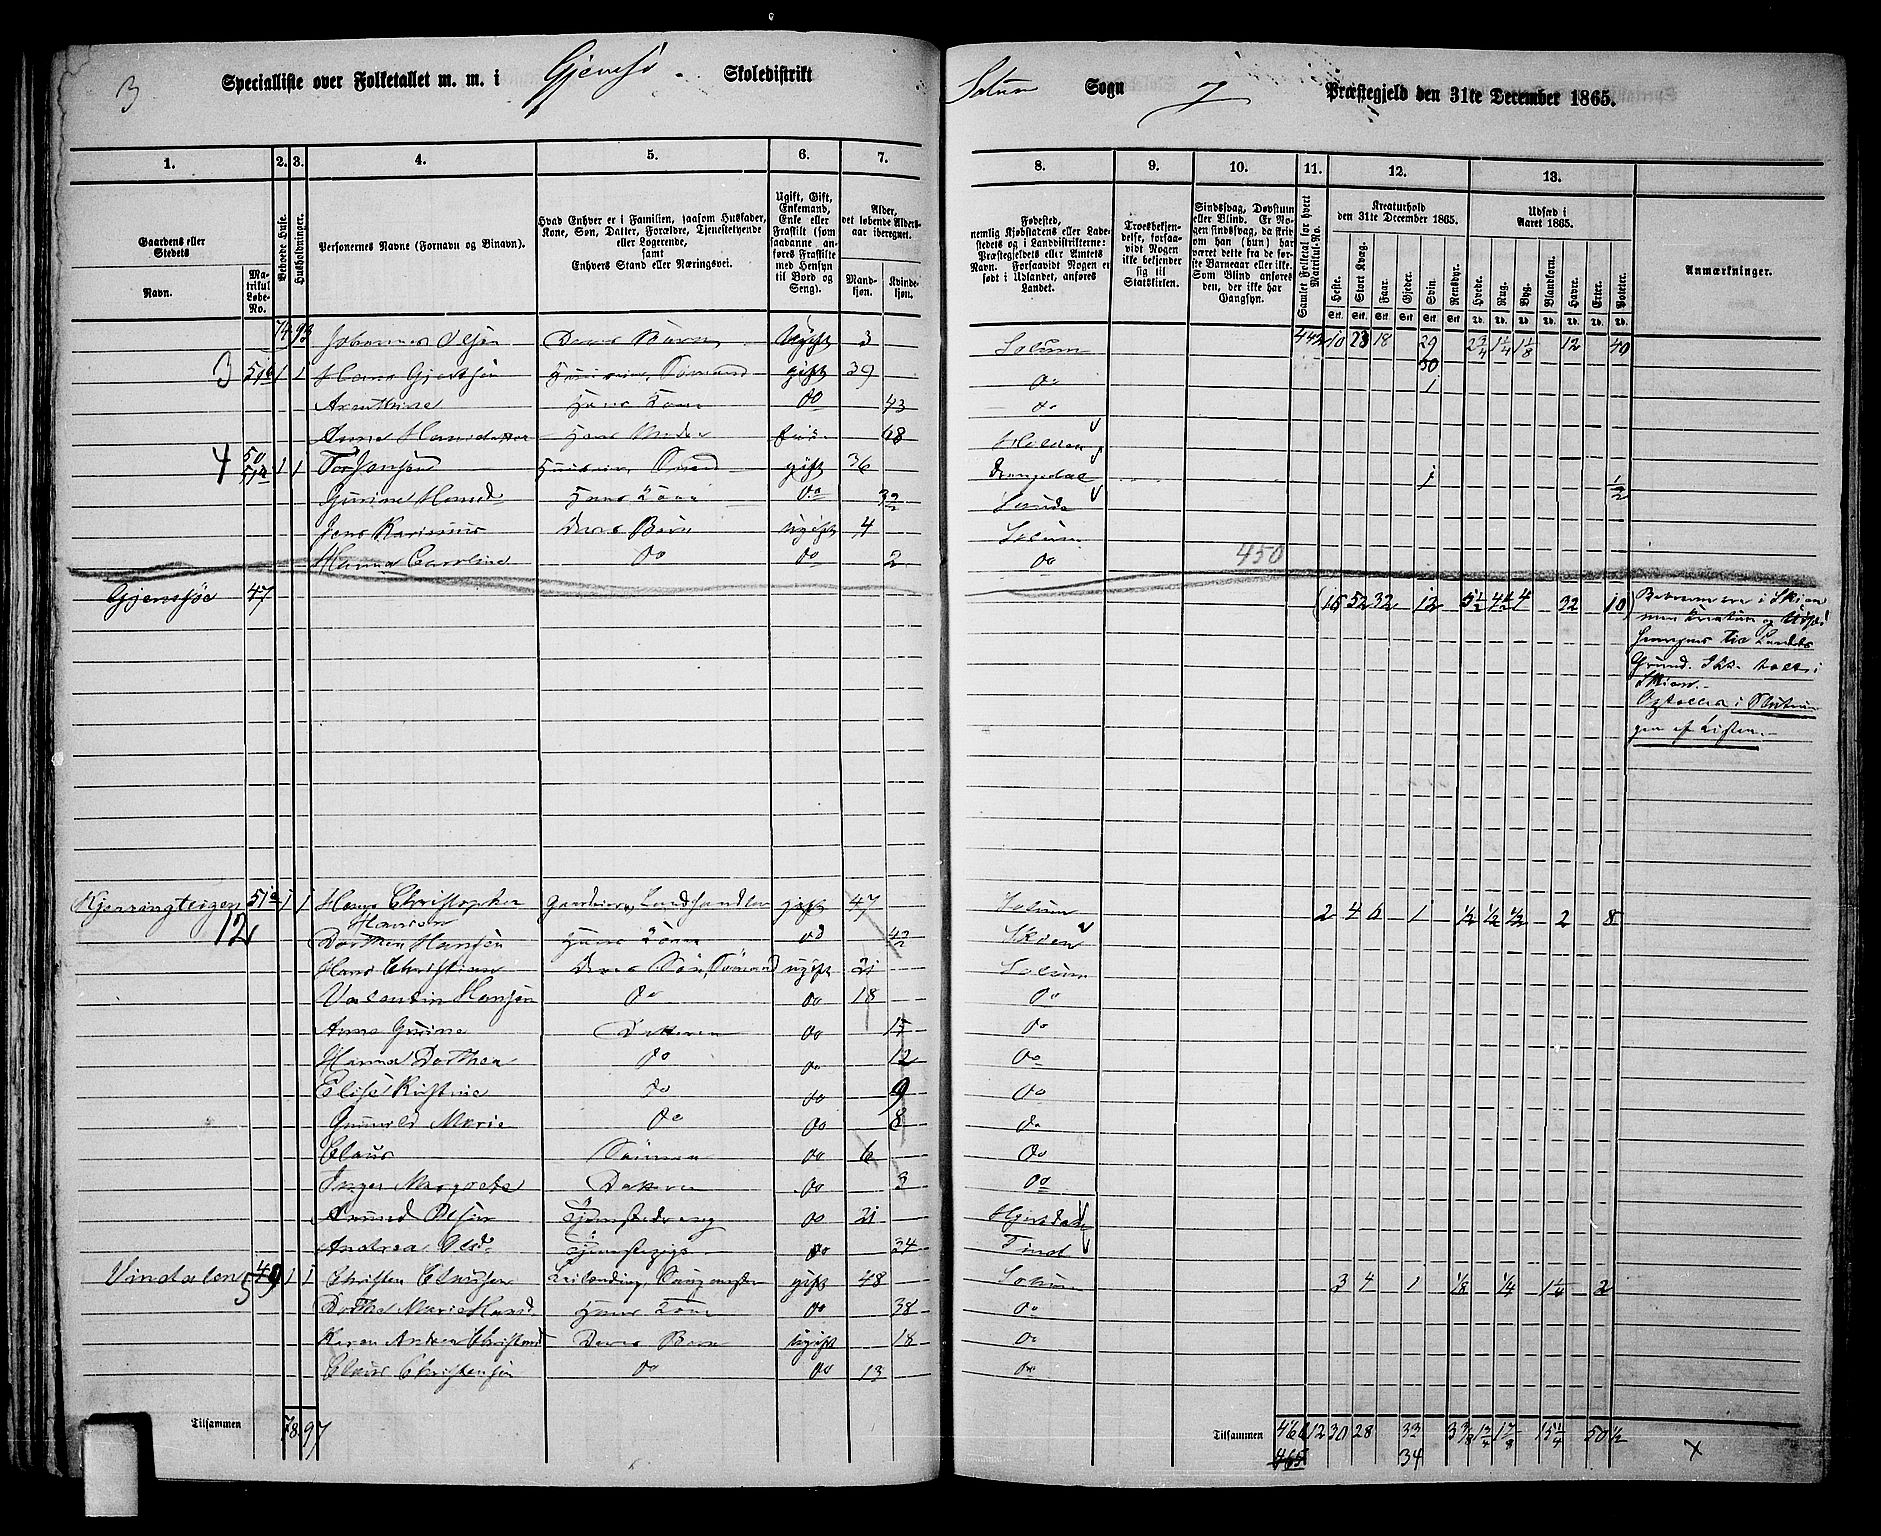 3 Specialliste over Folketallet m. m. i Gjemsö Skoledistrikt Solum Sogn Præstegjeld den 31te December 1865.
1. 2. 3. 4. 5. 6. 7. 8. 9. 10. 11. 12. 13.
Gaardens eller Stedets
Navn.
Matrikul Løbe-No.
Beboede Huse.
Husholdninger.
Personernes Navne (Fornavn og Binavn).
Hvad Enhver er i Familien, saasom Husfader, Kone, Søn, Datter, Forældre, Tjenestetyende eller Logerende, samt Enhvers Stand eller Næringsvei.
Ugift, Gift, Enkemand, Enke eller Fraskilt (som saadanne anføres Fraskilte med Hensyn til Bord og Seng).
Alder, det løbende Aldersaar iberegnet.
Mandkjøn. Kvindekjøn.
Fødested, nemlig Kjøbstadens eller Ladestedets og i Landdistrikterne: Præstegjeldets eller Amtets Navn. Forsaavidt Nogen er født i Udlandet, anføres Landet.
Troesbekjendelse, forsaavidt Nogen ikke bekjender sig til Statskirken.
Sindssvag, Døvstum eller Blind. Er Nogen sindssvag, da skriv om han (hun) har været dette fra de første Barneaar eller ikke. Som Blind anføres den, der ikke har Gangsyn.
Samlet Folketal for hvert Matrikul-No.
Kreaturhold den 31te December 1865.
Heste. Stort Kvæg. Faar. Gjeder. Svin. Rensdyr.
Udsæd i Aaret 1865.
Hvede. Rug. Byg. Blandkorn. Havre. Erter. Poteter.
Anmærkninger.
74 93 Johannes Olsen Deres Börn Ugift 3 Solum 442 10 23 18 29 2 3/4 1 1/4 1 1/8 12 40
3 51 1 1 Hans Gjertsen Huseier, Sømand gift 39 do 30 1
do 43 do
Anne Hansdatter Hans Moder 68 Holden
4 50 51 1 1 Tov Jansen gift 36 Drangedal 1 1/2
Gurine Hansd Hans Kone do 32
Jens Rasmus Deres Börn Ugift 4 Solum
Hanna Caroline do do 2 do 450
Gjemsöe 47 (16 52 32 12 5 1/2 4 1/2 4 32 10) Beboerne i Skien
men Kreatur og Udsæd
til Landets
Grund. i
Skien.
Optallet i Slutnin
gen af Listen.
Kjerringteigen 51 1 1 Hans Christopher Gaardeier, Landhandler gift 47 Solum 2 4 6 1 1/2 1/2 1/2 2 8
12 Hansen
Dorthea Hansen Hans Kone do 42 Skien
Hans Christian Deres Sön, Sömand ugift 21 Solum
Valentin Hansen do do 18 do
Anne Gurine Datteren do 15 do
Hanna Dorthea do do 12 do
Elise Kristine do do 9 do
Gunnild Marie do do 8 do
Claus Sönnen do 6 do
Inger Margrete Datteren do 3 do
Amund Olsen Tjenestedreng do 21 Hjerdal
Andrea Olsd. Tjenestepige do 34 Tind
Vindalen 49 1 1 Christen Clausen Leilænding, Saugmester gift 48 Solum 3 4 1 1/8 1/4 1 1/4 2
5 Dorthe Marie Hansd Hans Kone do 38 do
Karen Andrea Christensd Deres Börn Ugift 18 do
Claus Christensen do do 13 do
Tilsammen 78 97 Tilsammen 466 12 30 28 33 3 3/8 15 1/4 50 1/2
465 34